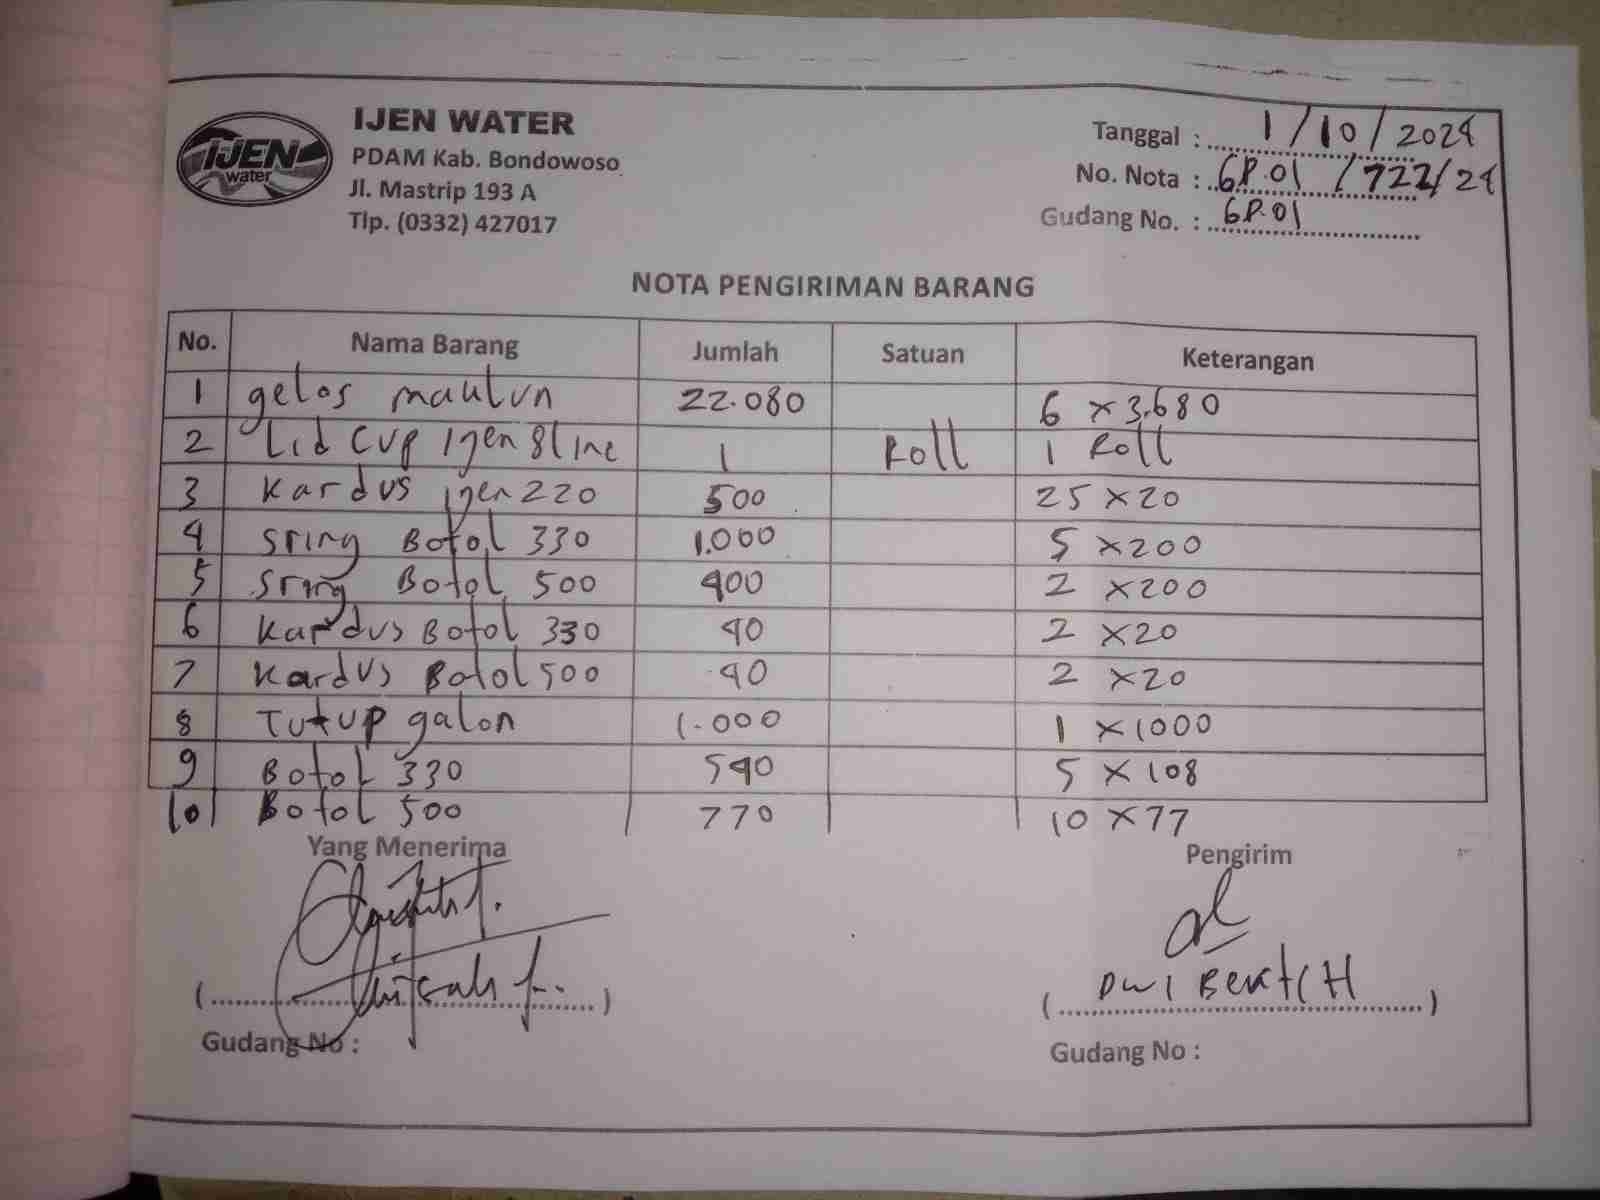 IJEN water
IJEN WATER
PDAM Kab. Bondowoso
Jl. Mastrip 193 A
Tlp. (0332) 427017
Tanggal : 1/10/2024
No. Nota : GP.01 / 722/24
Gudang No. : GP.01
NOTA PENGIRIMAN BARANG
No. Nama Barang Jumlah Satuan Keterangan
1 gelas 22.080 6 x 3.680
2 Lid Cup Ijen 8 line 1 Roll 1 Roll
3 Kardus ijen 220 500 25 x 20
4 Sring Botol 330 1.000 5 x 200
5 Sring Botol 500 400 2 x 200
6 Kardus Botol 330 40 2 x 20
7 Kardus Botol 500 40 2 x 20
8 Tutup galon 1.000 1 x 1000
9 Botol 330 540 5 x 108
10 Botol 500 770 10 x 77
Yang Menerima Pengirim
(..........) ( Dwi )
Gudang No : Gudang No :